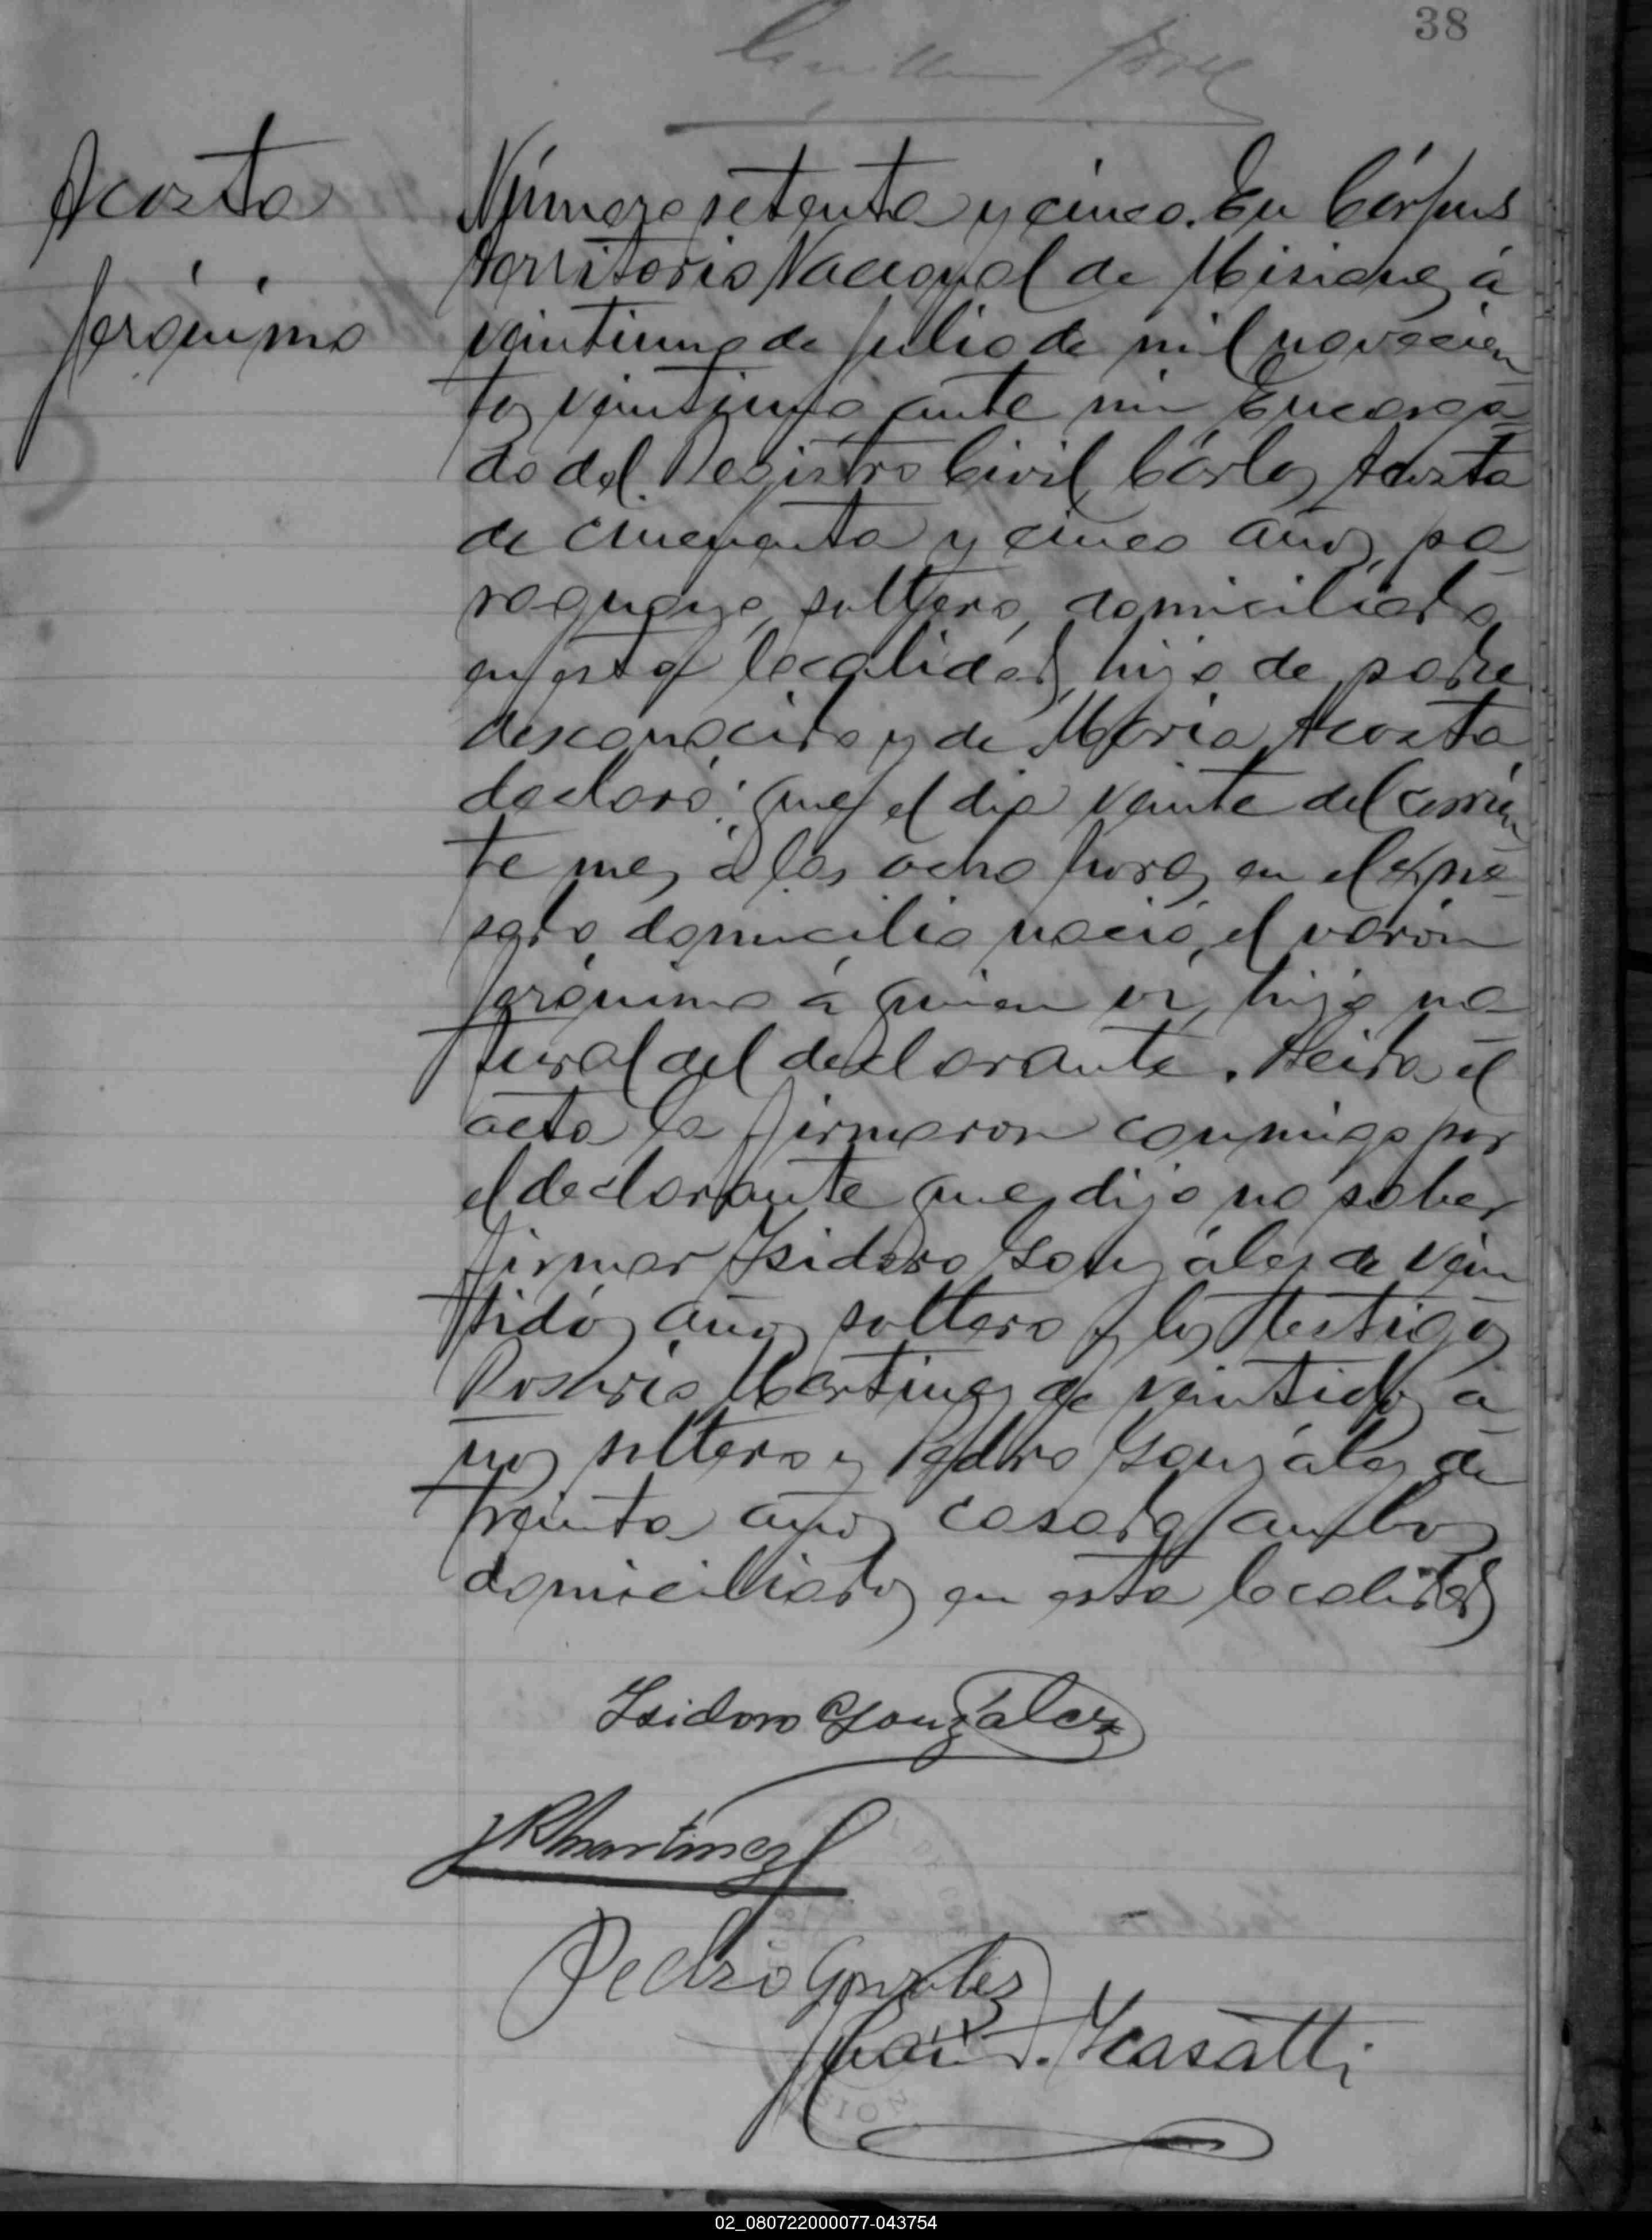 38
Acosta
Jerónimo
Número setenta y cinco. En Córpus
Territorio Nacional de Misiones á
veintiuno de Julio de mil novecien
tos veintiuno, ante mi Encarga
do del Registro Civil, Cárlos Acosta
de cincuenta y cinco años, pa
raguayo, soltero, domiciliado
en esta localidad, hijo de padre
desconocido y de Maria Acosta
declaró: que el dia veinte del corrien
te mes á las ocho horas en el expre
sado domicilio nació, el varón
Jerónimo á quien ví, hijo na
tural del declarante. Leida el
acta la firmaron conmigo por
el declarante que dijo no saber
firmar Isidoro Gonzáles de vein
tidós años soltero y los testigos
Rosario Martines de veintidos a
ños soltero y Pedro Gonzáles de
treinta años casado, ambos
domiciliados en esta localidad
Isidoro González
JRMartinez
Pedro Gonzalez
02_080722000077-043754